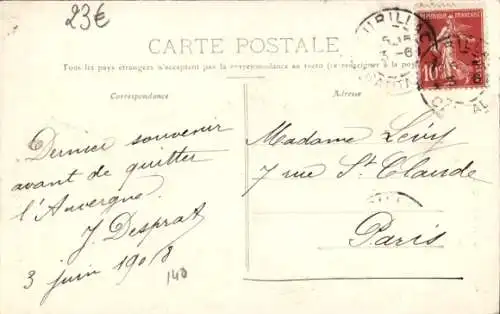 23€
CARTE POSTALE
Tous les pays étrangers n'acceptent pas la correspondance au recto (se renseigner à la poste)
Correspondance
Adresse
RÉPUBLIQUE FRANÇAISE
10
Dernier souvenir
avant de quitter
l'Auvergne
J. Desprat
3 juin 1908
140
Madame Lévy
7 rue St Claude
Paris